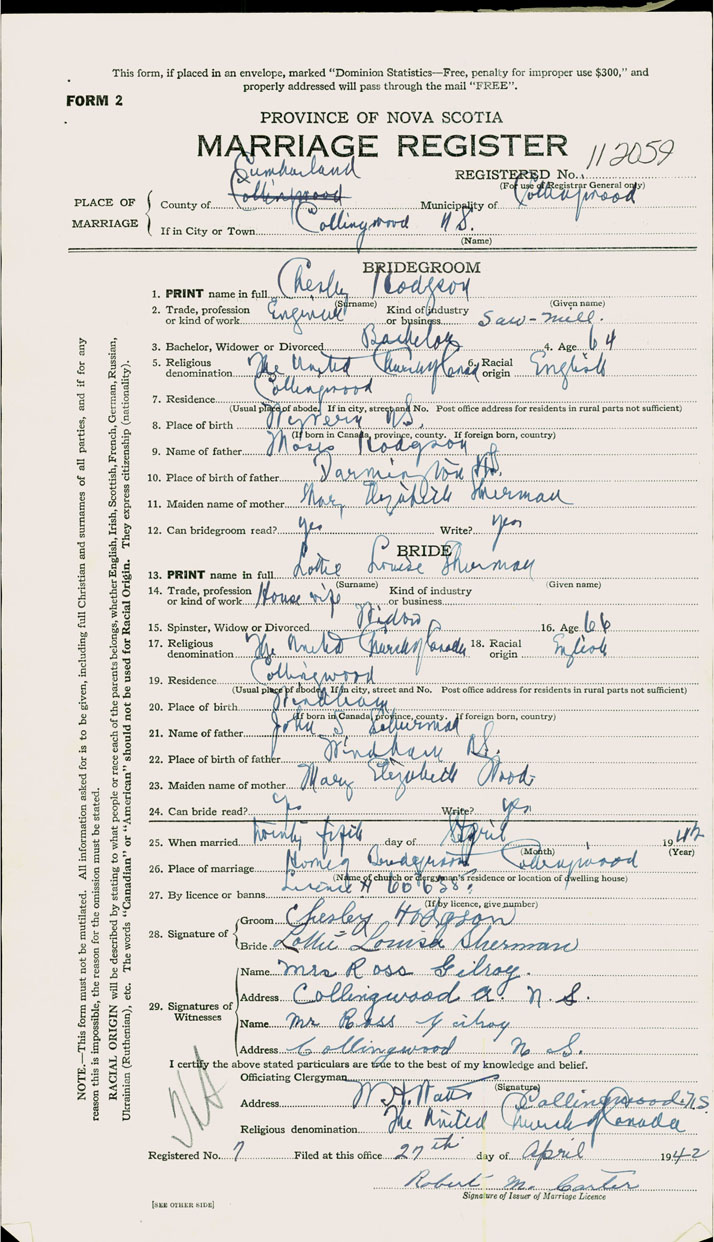 This form, if placed in an envelope, marked "Dominion Statistics—Free, penalty for improper use $300," and
properly addressed will pass through the mail "FREE".
FORM 2
PROVINCE OF NOVA SCOTIA
MARRIAGE REGISTER 112059
REGISTERED No.
(For use of Registrar General only)
PLACE OF MARRIAGE
Cumberland
County of Collingwood Municipality of Collingwood
If in City or Town Collingwood N S.
(Name)
BRIDEGROOM
1. PRINT name in full Chesley Hodgson
(Surname) (Given name)
2. Trade, profession or kind of work Engineer Kind of industry or business Saw-mill.
3. Bachelor, Widower or Divorced Bachelor 4. Age 64
5. Religious denomination The United Church of Canada 6. Racial origin English
7. Residence Collingwood
(Usual place of abode. If in city, street and No. Post office address for residents in rural parts not sufficient)
8. Place of birth N.S.
(If born in Canada, province, county. If foreign born, country)
9. Name of father Moses Hodgson
10. Place of birth of father
11. Maiden name of mother Mary Elizabeth Sherman
12. Can bridegroom read? yes Write? yes
BRIDE
13. PRINT name in full Lottie Louise Sherman
(Surname) (Given name)
14. Trade, profession or kind of work House wife Kind of industry or business
15. Spinster, Widow or Divorced Widow 16. Age 66
17. Religious denomination The United Church of Canada 18. Racial origin English
19. Residence Collingwood
(Usual place of abode. If in city, street and No. Post office address for residents in rural parts not sufficient)
20. Place of birth Windham
(If born in Canada, province, county. If foreign born, country)
21. Name of father John S
22. Place of birth of father Windham N.S.
23. Maiden name of mother Mary Elizabeth Wood
24. Can bride read? Yes Write? yes
25. When married twenty fifth day of April 1942
(Month) (Year)
26. Place of marriage Home of Bridegroom Collingwood
(Name of church or clergyman's residence or location of dwelling house)
27. By licence or banns Licence
(If by licence, give number)
28. Signature of
Groom Chesley Hodgson
Bride Lottie Louisa Sherman
29. Signatures of Witnesses
Name Mrs Ross Gilroy.
Address Collingwood N. S.
Name Mr Ross Gilroy
Address Collingwood N S.
I certify the above stated particulars are true to the best of my knowledge and belief.
Officiating Clergyman W.H. Watts
(Signature)
Address Collingwood N.S.
Religious denomination The United Church of Canada
Registered No. 7 Filed at this office 27th day of April 1942
Robert M. Carter
Signature of Issuer of Marriage Licence
[SEE OTHER SIDE]
NOTE.—This form must not be mutilated. All information asked for is to be given, including full Christian and surnames of all parties, and if for any
reason this is impossible, the reason for the omission must be stated.
RACIAL ORIGIN will be described by stating to what people or race each of the parents belongs, whether English, Irish, Scottish, French, German, Russian,
Ukrainian (Ruthenian), etc. The words "Canadian" or "American" should not be used for Racial Origin. They express citizenship (nationality).